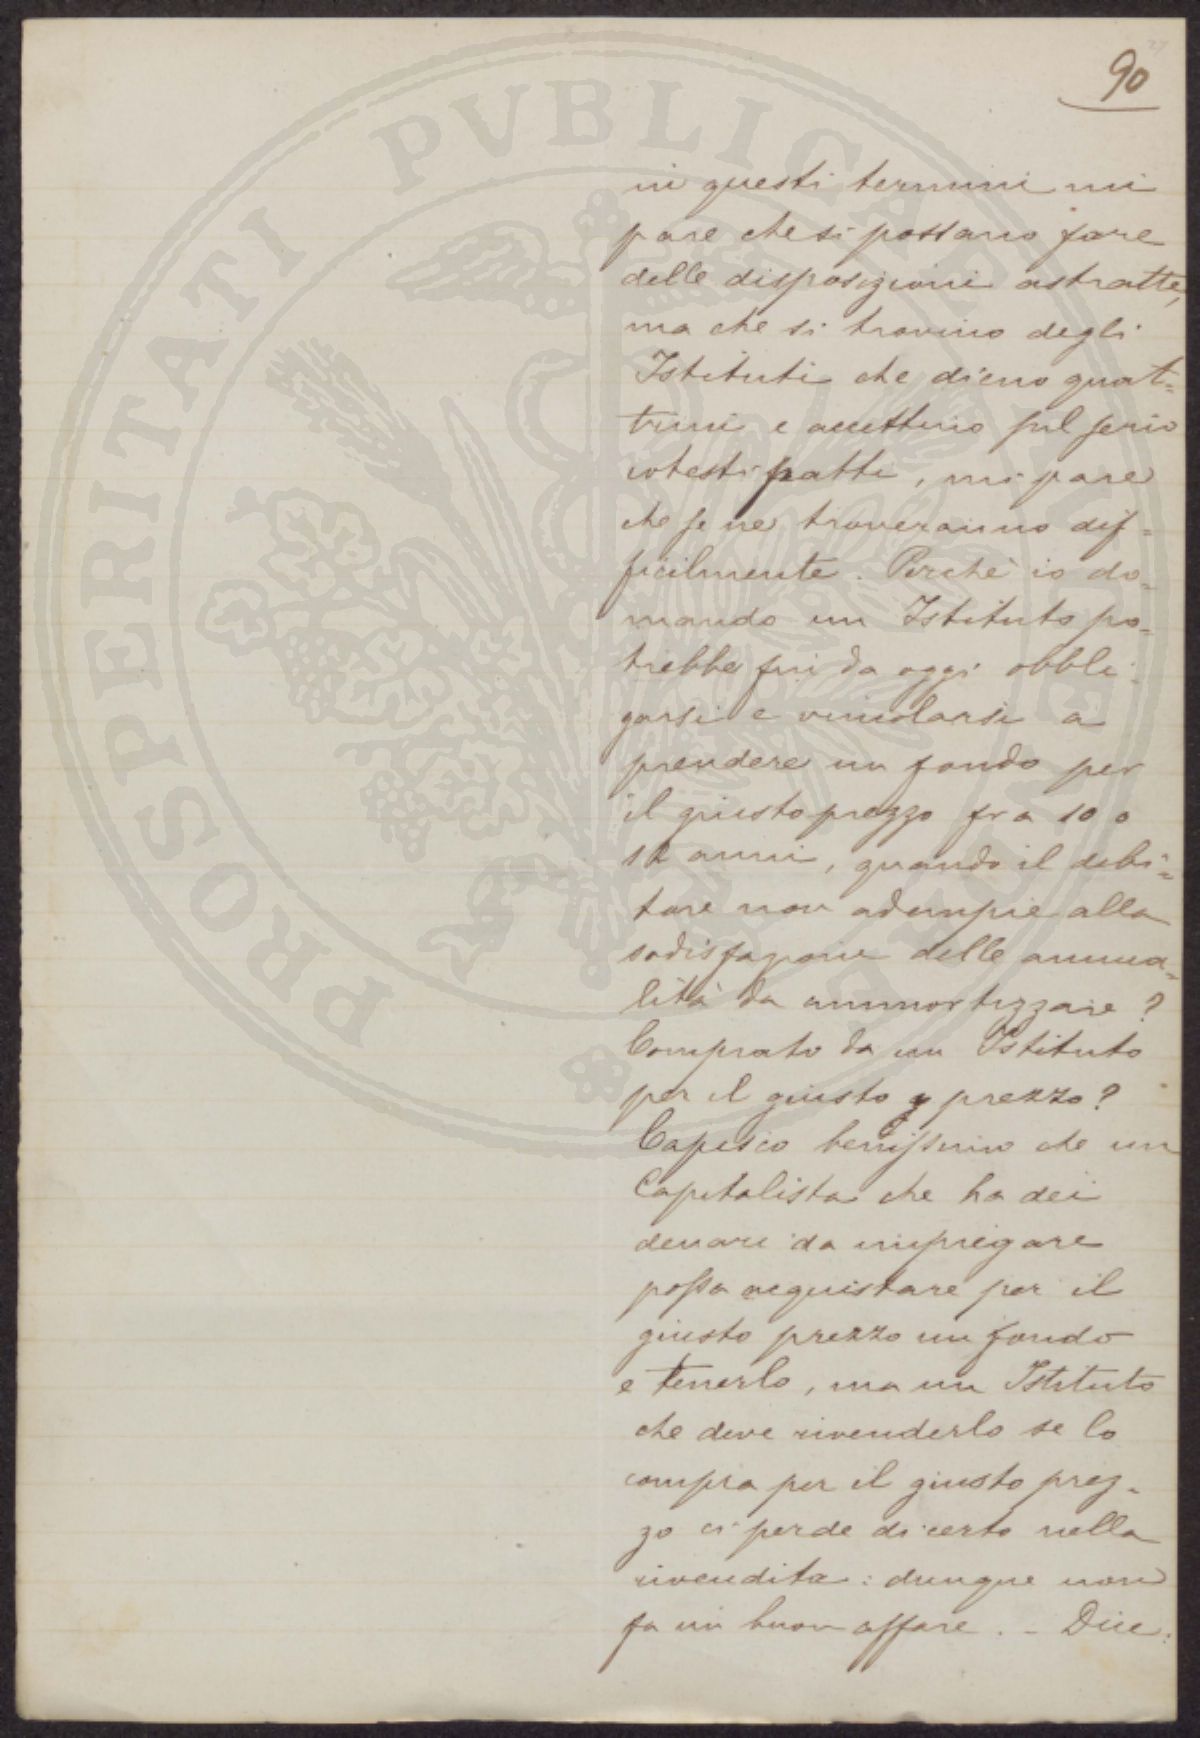 90
in questi termini mi
pare che si possano fare
delle disposizioni astratte,
ma che si trovino degli
Istituti che dieno quat=
trini e accettino sul serio
cotesti patti, mi pare
che se ne troveranno dif=
ficilmente. Perchè io do=
mando un Istituto po=
trebbe fin da oggi obbli=
garsi e vincolarsi a
prendere un fondo per
il giusto prezzo fra 10 o
12 anni, quando il debi=
tore non adempie alla
sodisfazione delle annua=
lità da ammortizzare?
Comprato da un Istituto
per il giusto prezzo?
Capisco benissimo che un
Capitalista che ha dei
denari da impiegare
possa acquistare per il
giusto prezzo un fondo
e tenerlo, ma un Istituto
che deve rivenderlo se lo
compra per il giusto prez=
zo ci perde di certo nella
rivendita: dunque non
fa un buon affare. – Dice:
PROSPERITATI PVBLICAE